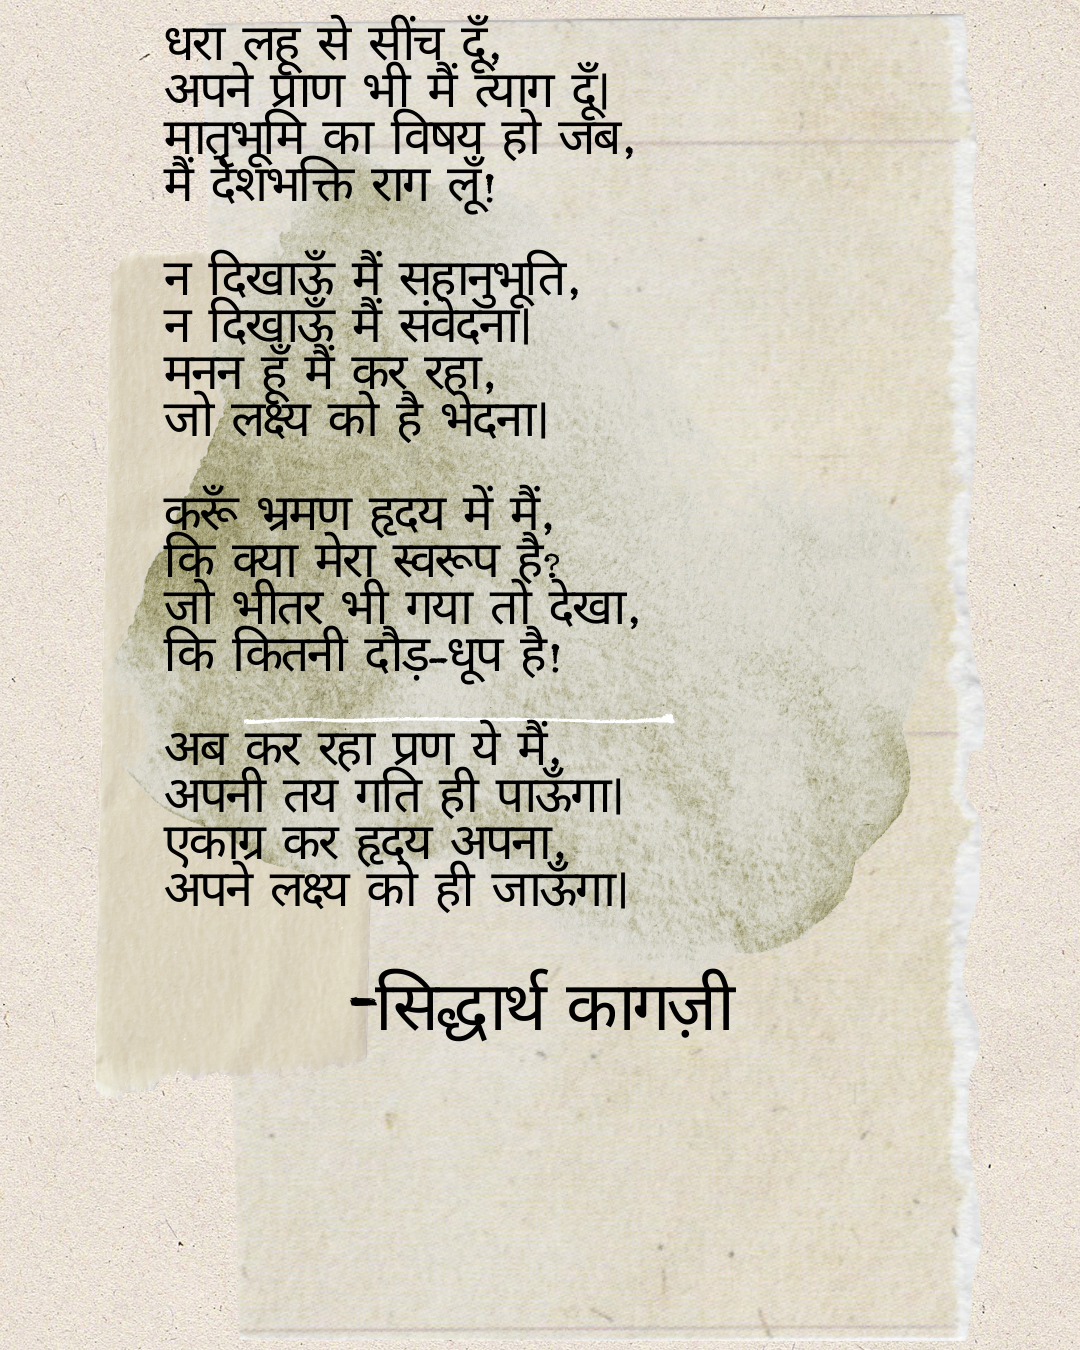 धरा लहू से सींच दूँ,
अपने प्राण भी मैं त्याग दूँ|
मातृभूमि का विषय हो जब,
मैं देशभक्ति राग लूँ!
न दिखाऊँ मैं सहानुभूति,
न दिखाऊँ मैं संवेदना|
मनन हूँ मैं कर रहा,
जो लक्ष्य को है भेदना|
करूँ भ्रमण हृदय में मैं,
कि क्या मेरा स्वरूप है?
जो भीतर भी गया तो देखा,
कि कितनी दौड़-धूप है!
अब कर रहा प्रण ये मैं,
अपनी तय गति ही पाऊँगा|
एकाग्र कर हृदय अपना,
अपने लक्ष्य को ही जाऊँगा|
-सिद्धार्थ कागज़ी